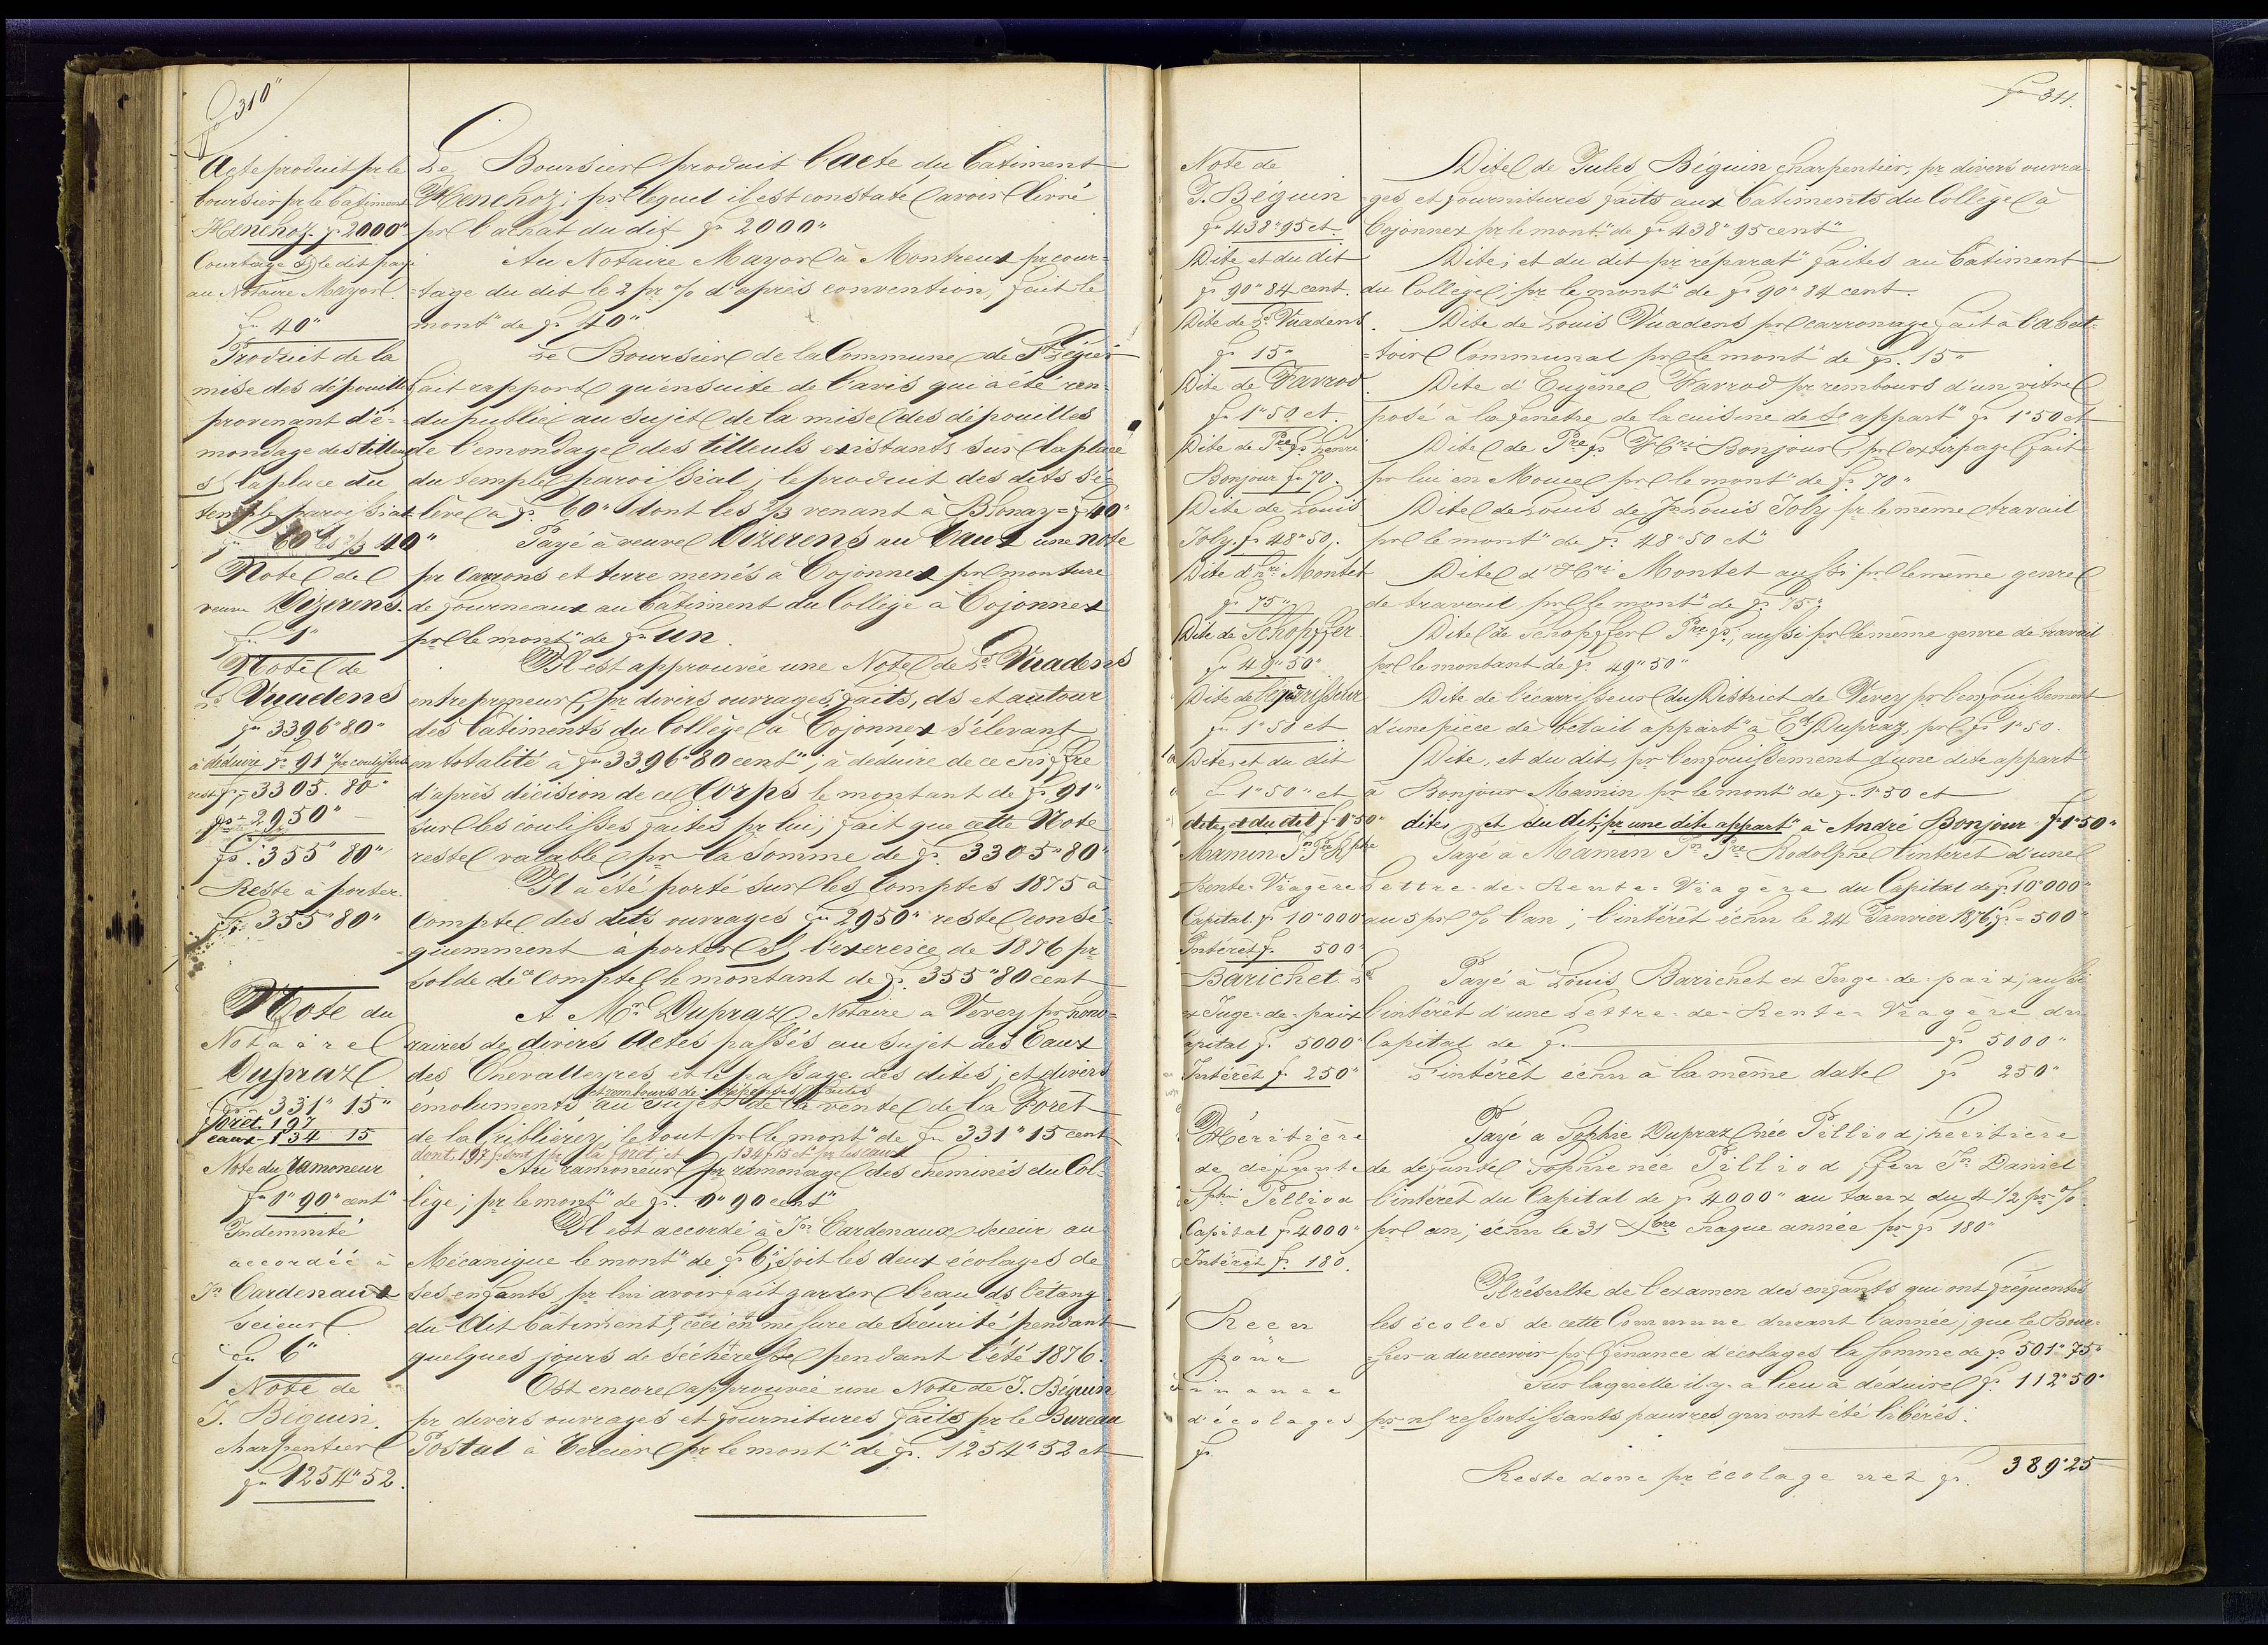 fo 310"
Acte produit pr le
boursier pr le bâtiment
Henchoz. fr 2000"
Courtage s/ le dit payé
au Notaire Mayor.
fr 40"
Produit de la
mise des dépouilles
provenant d'é-
mondage des tilleuls
s/ la place du
temple paroissial
fr 60" les 2/3 40"
Note de
veuve Dizerens.
fr 1"
Note de
Ls Vuadens
fr 3396"80"
à déduire fr 91" pr coulisses
reste fr 3305.80"
fr 2950"
fr 355"80"
Reste à porter
fr 355"80"
Note du
Notaire
Dupraz
fr 331"15"
forêt. 197
eaux - 134 15
Note du ramoneur
fr 0"90" cent"
Indemnité
accordée à
Jn Cardenaux
Scieur
fr 6"
Note de
J. Béguin
charpentier
fr 1254"52.
Le Boursier produit l'acte du bâtiment
Henchoz; pr lequel il est constaté avoir livré
pr l'achat du dit fr 2000"
Au Notaire Mayor à Montreux pr cour=
=tage du dit le 2 pr % d'après convention, fait le
mont" de fr 40"
Le Boursier de la Commune de St Légier
fait rapport qu'ensuite de l'avis qui a été ren-
du public au sujet de la mise des dépouilles
de l'émondage des tilleuls existants sur la place
du temple paroissial; le produit des dits s'é-
lève à fr. 60" dont les 2/3 venant à Blonay = fr 40"
Payé à veuve Dizerens au Vaux une note
pr Carrons et terre menés à Cojonnex pr monture
de fourneaux au bâtiment du Collège à Cojonnex
pr le mont" de fr un.
Il est approuvée une Note de Ls Vuadens
entrepreneur, pr divers ouvrages faits, ds et autour
des bâtiments du Collège à Cojonnex s'élevant
en totalité à fr 3396"80 cent"; à déduire de ce chiffre
d'après décision de ce Corps le montant de fr 91"
sur les coulisses faites pr lui, fait que cette Note
reste valable pr la somme de fr. 3305"80"
Il a été porté sur les Comptes 1875 à
Compte des dits ouvrages fr 2950" reste consé-
=quemment à porter s/ l'exercice de 1876 pr
solde de ce Compte le montant de fr. 355"80 cent
A Mr Dupraz Notaire à Vevey pr hono=
raires de divers Actes passés au sujet des Eaux
des Chevalleyres et le passage des dites; et divers
et rembours de dépenses faites
émoluments au sujet de la vente de la Foret
de la Griblierez, le tout pr le mont" de fr 331"15 cent
dont 197 fr sont pr la forêt et 134 fr 15 ct pr les eaux
Au ramoneur pr ramonage des cheminés du Col-
lège; pr le mont" de fr. 0"90 cent"
Il est accordé à Jn Cardenaux Scieur au
Mécanique le mont" de fr 6"; soit les deux écolages de
ses enfants pr lui avoir fait garder l'eau ds l'étang
du dit bâtiment, ceci en mesure de sécurité pendant
quelques jours de séchéresse pendant l'été 1876.
Est encore approuvée une Note de J. Béguin
pr divers ouvrages et fournitures faits pr le Bureau
Postal à Tercier pr le mont" de fr. 1254"52 ct
fo 311.
Note de
J. Béguin
fr 438"95 ct.
Dite et du dit
fr 90"84 cent.
Dite de Ls Vuadens.
fr 15"
Dite de Favrod
fr 1"50 ct.
Dite de Pre fs Henri
Bonjour fr 70.
Dite de Louis
Joly. fr 48"50.
Dite d'Hri Montet
fr 75"
Dite de Schopffer
fr 49"50"
Dite de l'équarisseur
fr 1"50 ct
Dite, et du dit
fr 1"50" ct
dite, et du dit fr 1"50"
Mamin Jn Pre Rphe
Rente-Viagère
Capital. fr 10"000"
Intérêt fr. 500"
Barichet Ls
ex Juge-de-paix
Capital fr 5000"
Intérêt fr 250"
Héritière
de défunte
Sphie Pilliod
Capital fr 4000"
Intérêt fr 180.
Reçu
pour
finance
d'écolages
fr
Dite de Jules Béguin charpentier, pr divers ouvra-
ges et fournitures faits aux bâtiments du Collège à
Cojonnex pr le mont" de fr 438"95 cent"
Dite; et du dit pr réparat" faites au bâtiment
du Collège; pr le mont" de fr 90"84 cent.
Dite de Louis Vuadens pr carronage fait à l'abat-
=toir Communal pr le mont" de fr. 15"
Dite d'Eugène Favrod pr rembours d'un vitre
posé à la fenêtre de la cuisine de se appart" fr 1"50 ct
Dite de Pre fs Hri Bonjour, pr extirpage fait
pr lui en Mouce pr le mont" de fr 70"
Dite de Louis de Jn Louis Joly pr le même travail
pr le mont" de fr. 48"50 ct"
Dite d'Hri Montet aussi pr le même genre
de travail pr le mont" de fr 75"
Dite de Schopffer Pre fs; aussi pr le même genre de travail
pr le montant de fr 49"50"
Dite de l'écarrisseur du District de Vevey pr l'enfouissement
d'une pièce de bétail appart" à Ed Dupraz, pr fr 1"50.
Dite, et du dit, pr l'enfouissement d'une dite appart"
à Bonjour Mamin pr le mont" de fr. 1"50 ct
dite, et du dit, pr une dite appart" à André Bonjour fr 1"50"
Payé à Mamin Jn Pre Rodolphe l'intérêt d'une
Lettre-de-Rente-Viagère du Capital de fr. 10"000"
au 5 pr % l'an; l'intérêt échu le 24 Janvier 1876, fr = 500"
Payé à Louis Barichet ex Juge-de-paix; aussi
l'intérêt d'une Lettre-de-Rente-Viagère du
Capital de fr. fr 5000"
L'intérêt échu à la même date fr 250"
Payé à Sophie Dupraz née Pilliod; héritière
de défunte Sophie née Pilliod, feu Jn Daniel
l'intérêt du Capital de fr 4000" au taux du 4 1/2 pr %
pr an; échu le 31 Xbre chaque année pr fr 180"
Il résulte de l'examen des enfants qui ont fréquentés
les écoles de cette Commune durant l'année, que le Bour-
=sier a du recevoir pr finance d'écolages la somme de fr 501"75"
Sur laquelle il y a lieu à déduire fr. 112"50"
pr ns ressortissants pauvres qui ont été libérés.
Reste donc pr écolage net fr. 389"25